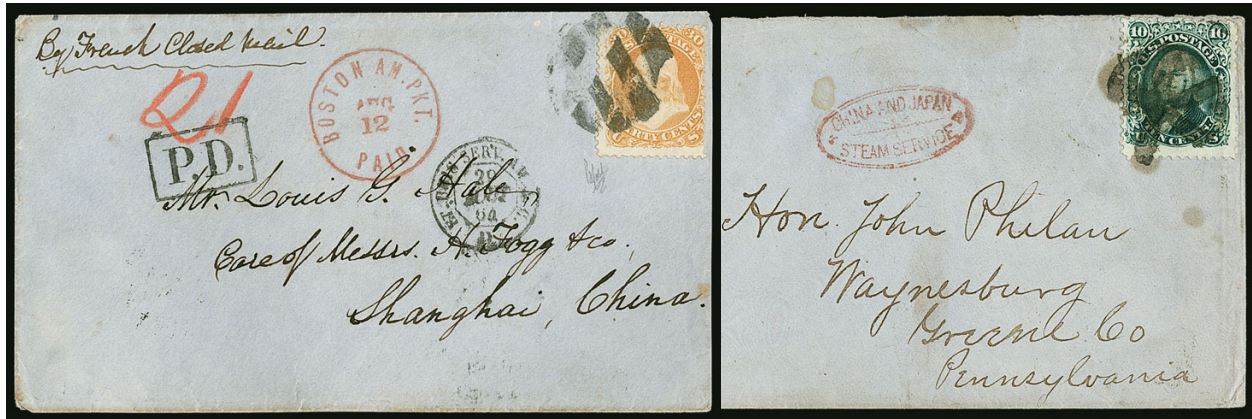 By French Closed Mail.
21
P.D.
BOSTON AM. PKT.
AUG.
12
PAID
30
POSTAGE
THIRTY CENTS
ET-UNIS SERV. AM.
29
AOUT
64
Mr. Louis G. Hale,
Care of Messrs. H. Fogg & co.
Shanghai, China.
CHINA AND JAPAN
STEAM SERVICE
10 10
U.S. POSTAGE
TEN CENTS
Hon. John Philan
Waynesburg
Greene Co
Pennsylvania